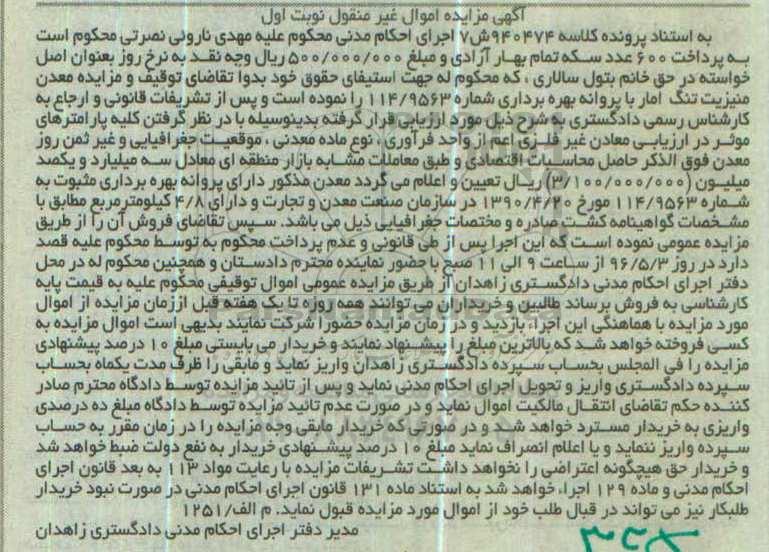 آگهی مزایده اموال غیر منقول نوبت اول
به استناد پرونده کلاسه ۹۴۰۴۷۴ش۷ اجرای احکام مدنی محکوم علیه مهدی نارونی نصرتی محکوم است
به پرداخت ۶۰۰ عدد سکه تمام بهار آزادی و مبلغ ۵۰۰/۰۰۰/۰۰۰ ریال وجه نقد به نرخ روز بعنوان اصل
خواسته در حق خانم بتول سالاری ، که محکوم له جهت استیفای حقوق خود بدوا تقاضای توقیف و مزایده معدن
منیزیت تنگ امار با پروانه بهره برداری شماره ۱۱۴/۹۵۶۳ را نموده است و پس از تشریفات قانونی و ارجاع به
کارشناس رسمی دادگستری به شرح ذیل مورد ارزیابی قرار گرفته بدینوسیله با در نظر گرفتن کلیه پارامترهای
موثر در ارزیابی معادن غیر فلزی اعم از واحد فرآوری ، نوع ماده معدنی ، موقعیت جغرافیایی و غیر ثمن روز
معدن فوق الذکر حاصل محاسبات اقتصادی و طبق معاملات مشابه بازار منطقه ای معادل سه میلیارد و یکصد
میلیون (۳/۱۰۰/۰۰۰/۰۰۰) ریال تعیین و اعلام می گردد معدن مذکور دارای پروانه بهره برداری مثبوت به
شماره ۱۱۴/۹۵۶۳ مورخ ۱۳۹۰/۴/۲۰ در سازمان صنعت معدن و تجارت و دارای ۴/۸ کیلومترمربع مطابق با
مشخصات گواهینامه کشف صادره و مختصات جغرافیایی ذیل می باشد. سپس تقاضای فروش آن را از طریق
مزایده عمومی نموده است که این اجرا پس از طی قانونی و عدم پرداخت محکوم به توسط محکوم علیه قصد
دارد در روز ۹۶/۵/۳ از ساعت ۹ الی ۱۱ صبح با حضور نماینده محترم دادستان و همچنین محکوم له در محل
دفتر اجرای احکام مدنی دادگستری زاهدان از طریق مزایده عمومی اموال توقیفی محکوم علیه به قیمت پایه
کارشناسی به فروش برساند طالبین و خریداران می توانند همه روزه تا یک هفته قبل اززمان مزایده از اموال
مورد مزایده با هماهنگی این اجراء بازدید و در زمان مزایده حضورا شرکت نمایند بدیهی است اموال مزایده به
کسی فروخته خواهد شد که بالاترین مبلغ را پیشنهاد نمایند و خریدار می بایستی مبلغ ۱۰ درصد پیشنهادی
مزایده را فی المجلس بحساب سپرده دادگستری زاهدان واریز نماید و مابقی را ظرف مدت یکماه بحساب
سپرده دادگستری واریز و تحویل اجرای احکام مدنی نماید و پس از تائید مزایده توسط دادگاه محترم صادر
کننده حکم تقاضای انتقال مالکیت اموال نماید و در صورت عدم تائید مزایده توسط دادگاه مبلغ ده درصدی
واریزی به خریدار مسترد خواهد شد و در صورتی که خریدار مابقی وجه مزایده را در زمان مقرر به حساب
سپرده واریز ننماید و یا اعلام انصراف نماید مبلغ ۱۰ درصد پیشنهادی خریدار به نفع دولت ضبط خواهد شد
و خریدار حق هیچگونه اعتراضی را نخواهد داشت تشریفات مزایده با رعایت مواد ۱۱۳ به بعد قانون اجرای
احکام مدنی و ماده ۱۲۹ اجراء خواهد شد به استناد ماده ۱۳۱ قانون اجرای احکام مدنی در صورت نبود خریدار
طلبکار نیز می تواند در قبال طلب خود از اموال مورد مزایده قبول نماید. م الف/۱۲۵۱
مدیر دفتر اجرای احکام مدنی دادگستری زاهدان